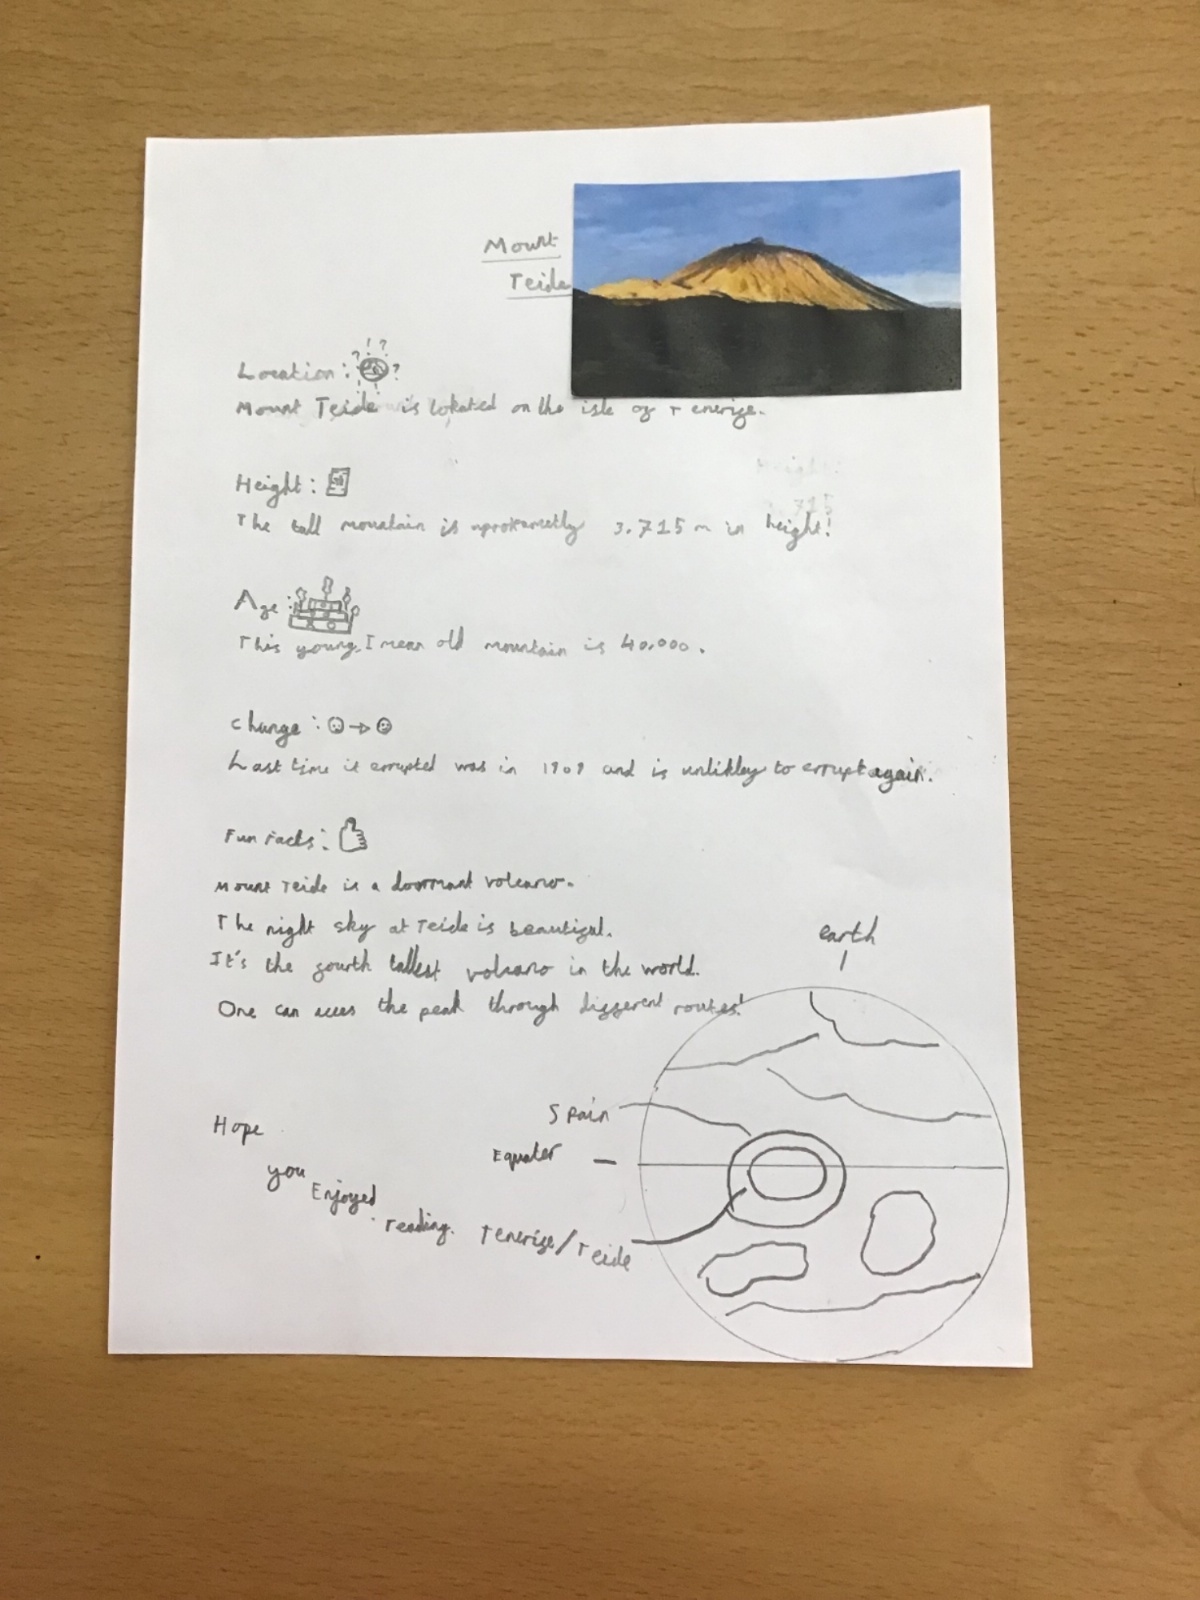 Mount
Teide
Location:
Mount Teide is lokated on the isle of Tenerife.
Height:
The tall mountain is aproxametly 3.715 m in height!
Age:
This young, I mean old mountain is 40,000.
Change:
Last time it errupted was in 1909 and is unlikley to errupt again.
Fun Facts:
Mount Teide is a doormant volcano.
The night sky at Teide is beautiful.
It's the fourth tallest volcano in the world.
One can acces the peak through different routes!
earth
Spain
Equater
Tenerife/Teide
Hope
you
Enjoyed
reading.